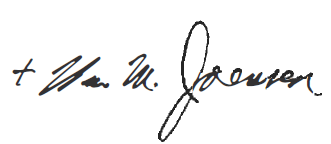 + Wm M. Joensen